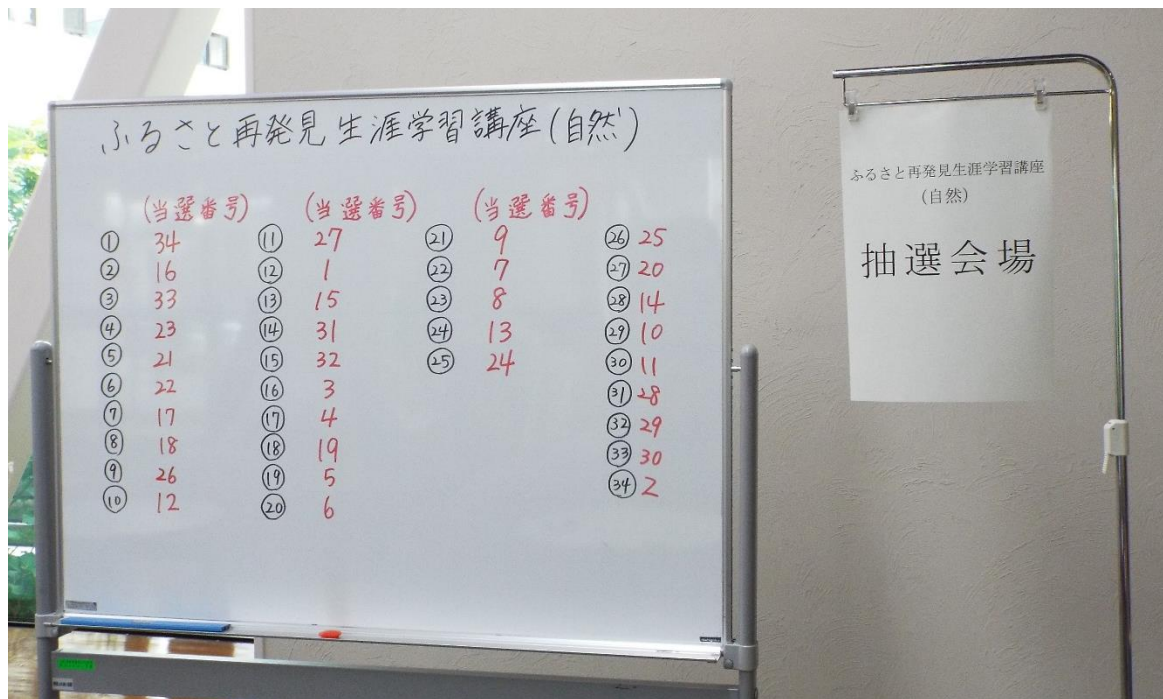 ふるさと再発見 生涯学習講座(自然)
(当選番号)
① 34
② 16
③ 33
④ 23
⑤ 21
⑥ 22
⑦ 17
⑧ 18
⑨ 26
⑩ 12
(当選番号)
⑪ 27
⑫ 1
⑬ 15
⑭ 31
⑮ 32
⑯ 3
⑰ 4
⑱ 19
⑲ 5
⑳ 6
(当選番号)
㉑ 9
㉒ 7
㉓ 8
㉔ 13
㉕ 24
㉖ 25
㉗ 20
㉘ 14
㉙ 10
㉚ 11
㉛ 28
㉜ 29
㉝ 30
㉞ 2
ふるさと再発見生涯学習講座
(自然)
抽選会場